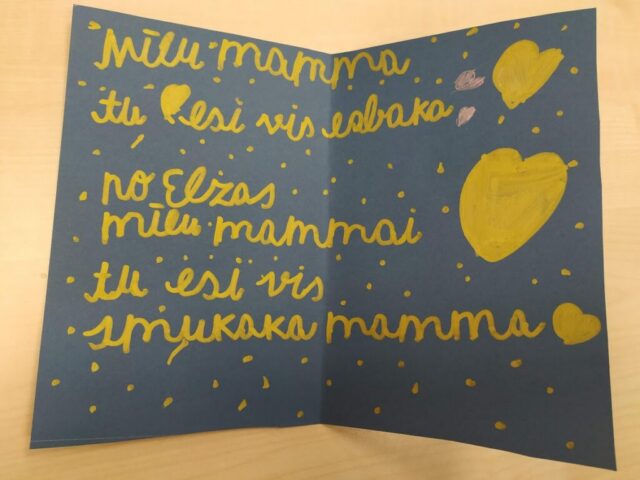 Mīlu mamma
tu esi vis esbaka
no Elžas
mīlu mammai
tu esi vis
smukaka mamma